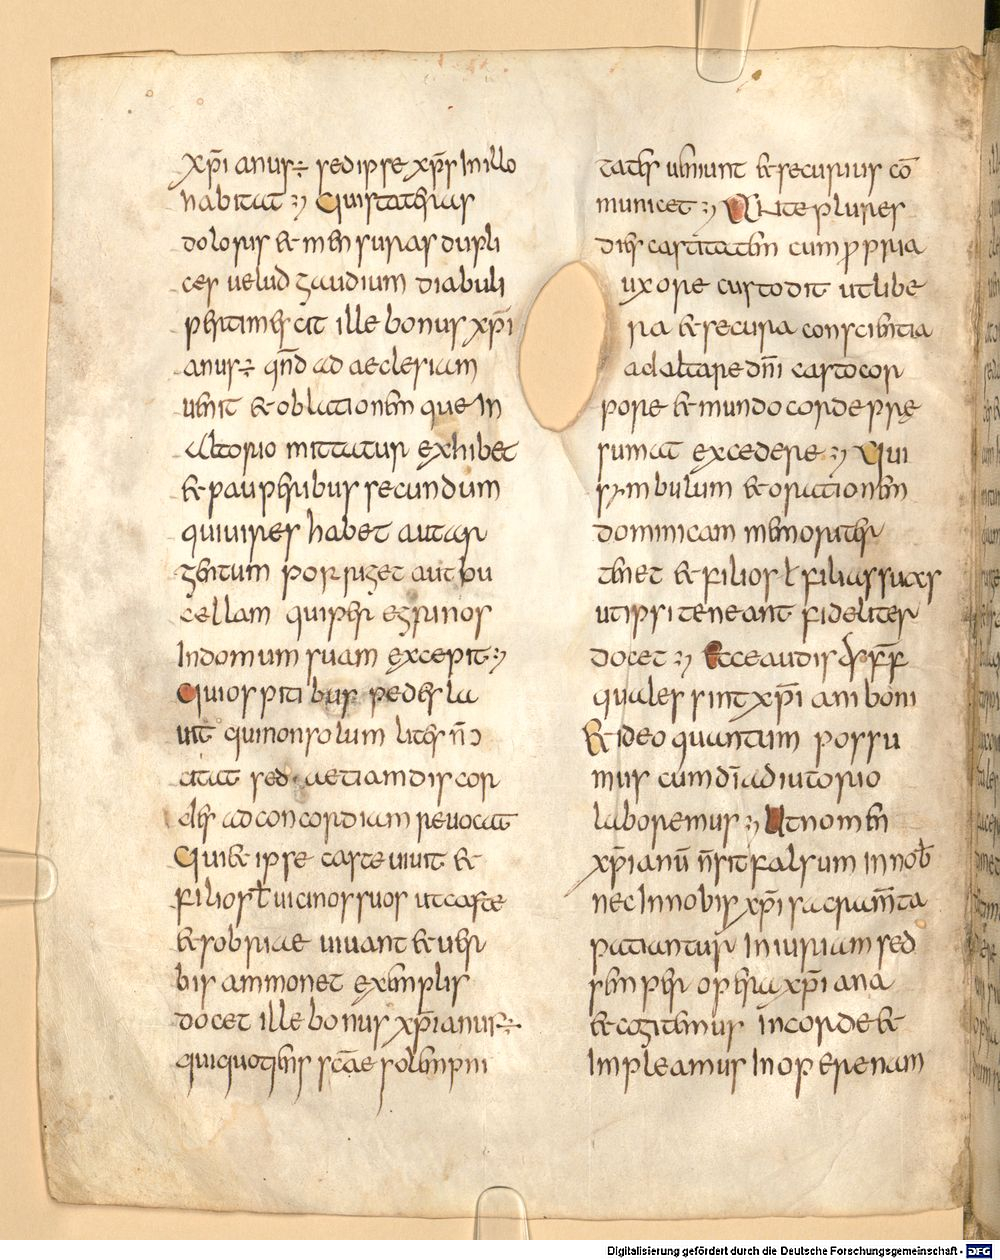 xp̄ianus÷ sed ipse xp̄s in illo
habitat :, Qui stateras
dolosus & mensuras dupli
ces uelud gaudium diabuli
pertimescit ille bonus xp̄i
anus÷ qn̄d ad aeclesiam
uenit & oblationem que in
altorio mittatur exhibet
& pauperibus secundum
qui uires habet aut ar
gentum porriget aut bu
cellam qui peregrinos
in domum suam excepit :,
Qui ospitibus pedes la
uit qui non solum lites n̄ ɔ
citat sed aetiam discor
des ad concordiam reuocat
Qui & ipse caste uiuit &
filios ƚ uicinos suos ut caste
& sobriae uiuant & uer
bis ammonet exemplis
docet ille bonus xp̄ianus÷
qui quotiens sc̄ae solempni
tates ueniunt & securius cō
municet :, Ante plures
dies castitatem cum propria
uxore custodit ut libe
ra & secura conscientia
ad altare dn̄i casto cor
pore & mundo corde prę
sumat excedere :, Qui
symbulum & orationem
dominicam memoriter
tenet & filios ƚ filias suas
ut ipsi teneant fideliter
docet :, Ecce audis
quales sint xp̄iani boni
& ideo quantum possu
mus cum dī adiutorio
laboremus :, Ut nomen
xp̄ianū n̄ sit falsum in nob̄
nec in nobis xp̄i sacram̄ta
patiantur iniuriam sed
semper opera xp̄iana
& cogitemus in corde &
impleamus in opere nam
Digitalisierung gefördert durch die Deutsche Forschungsgemeinschaft - DFG